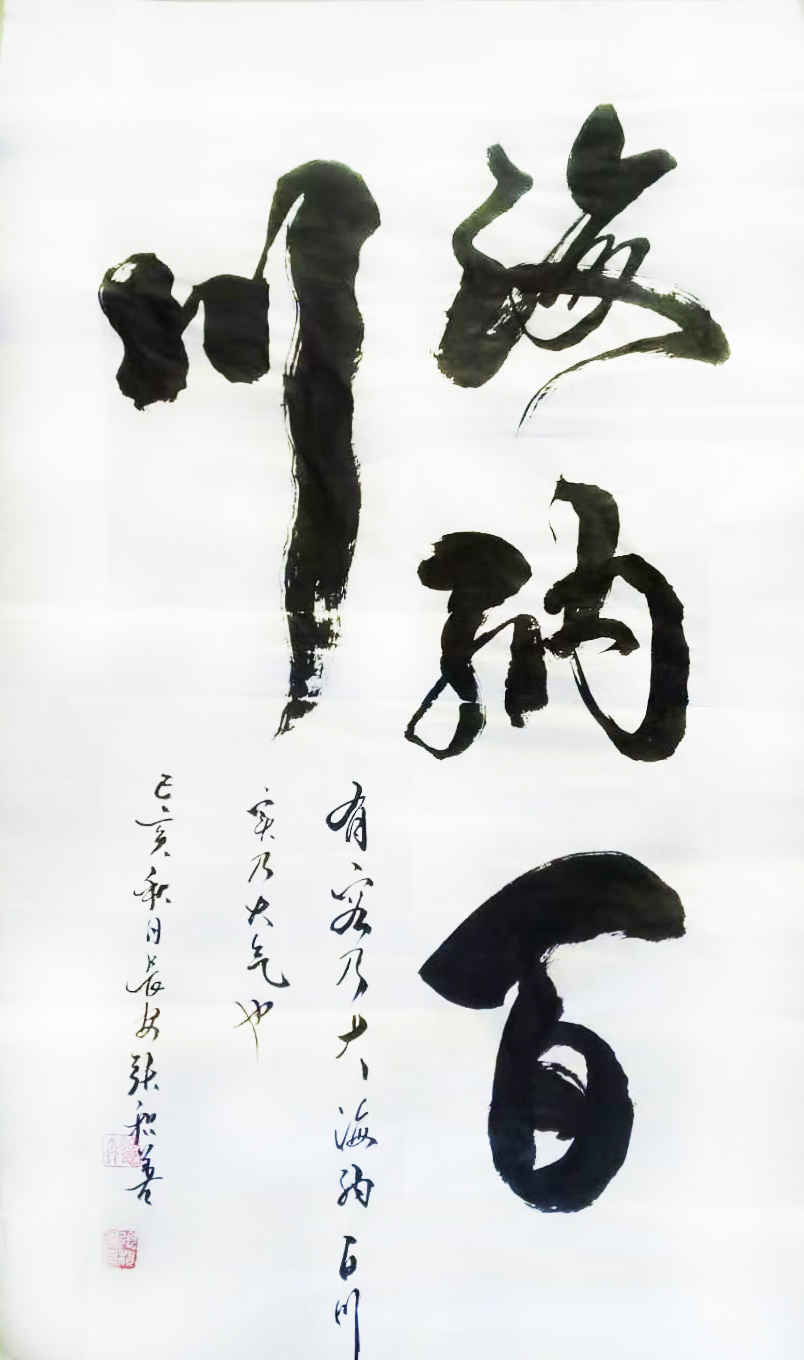 海纳百
川
有容乃大海纳百川
实乃大气也
己亥秋月长安张和善